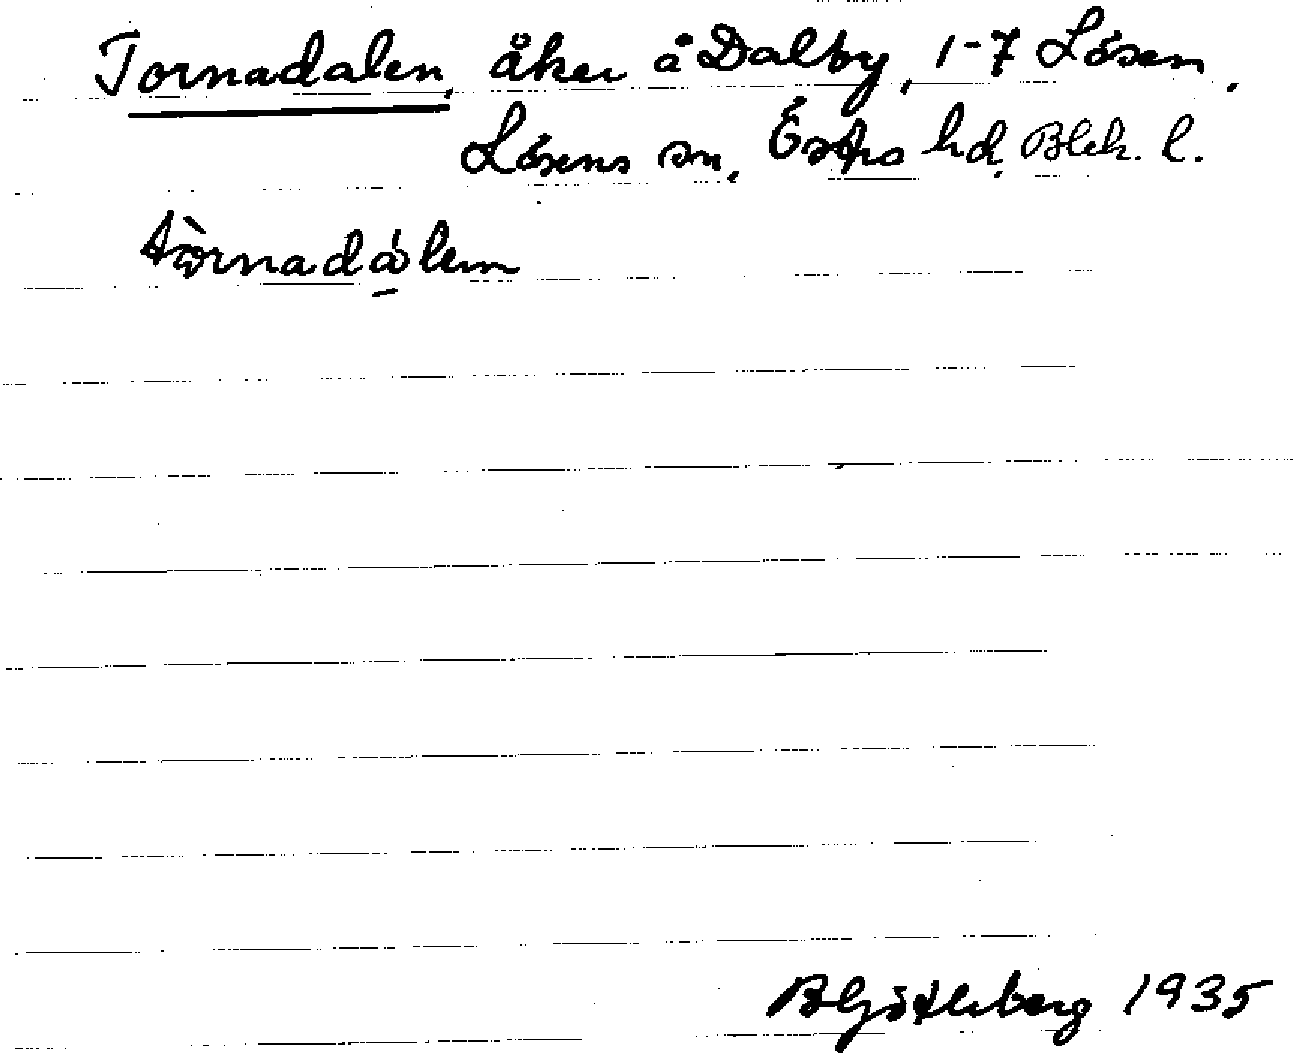 Tornadalen, åker å Dalby, 1-7 Lösen.
Lösens sn, Östra hd, Blek. l.
tòrnadálen
B Götlaberg 1935